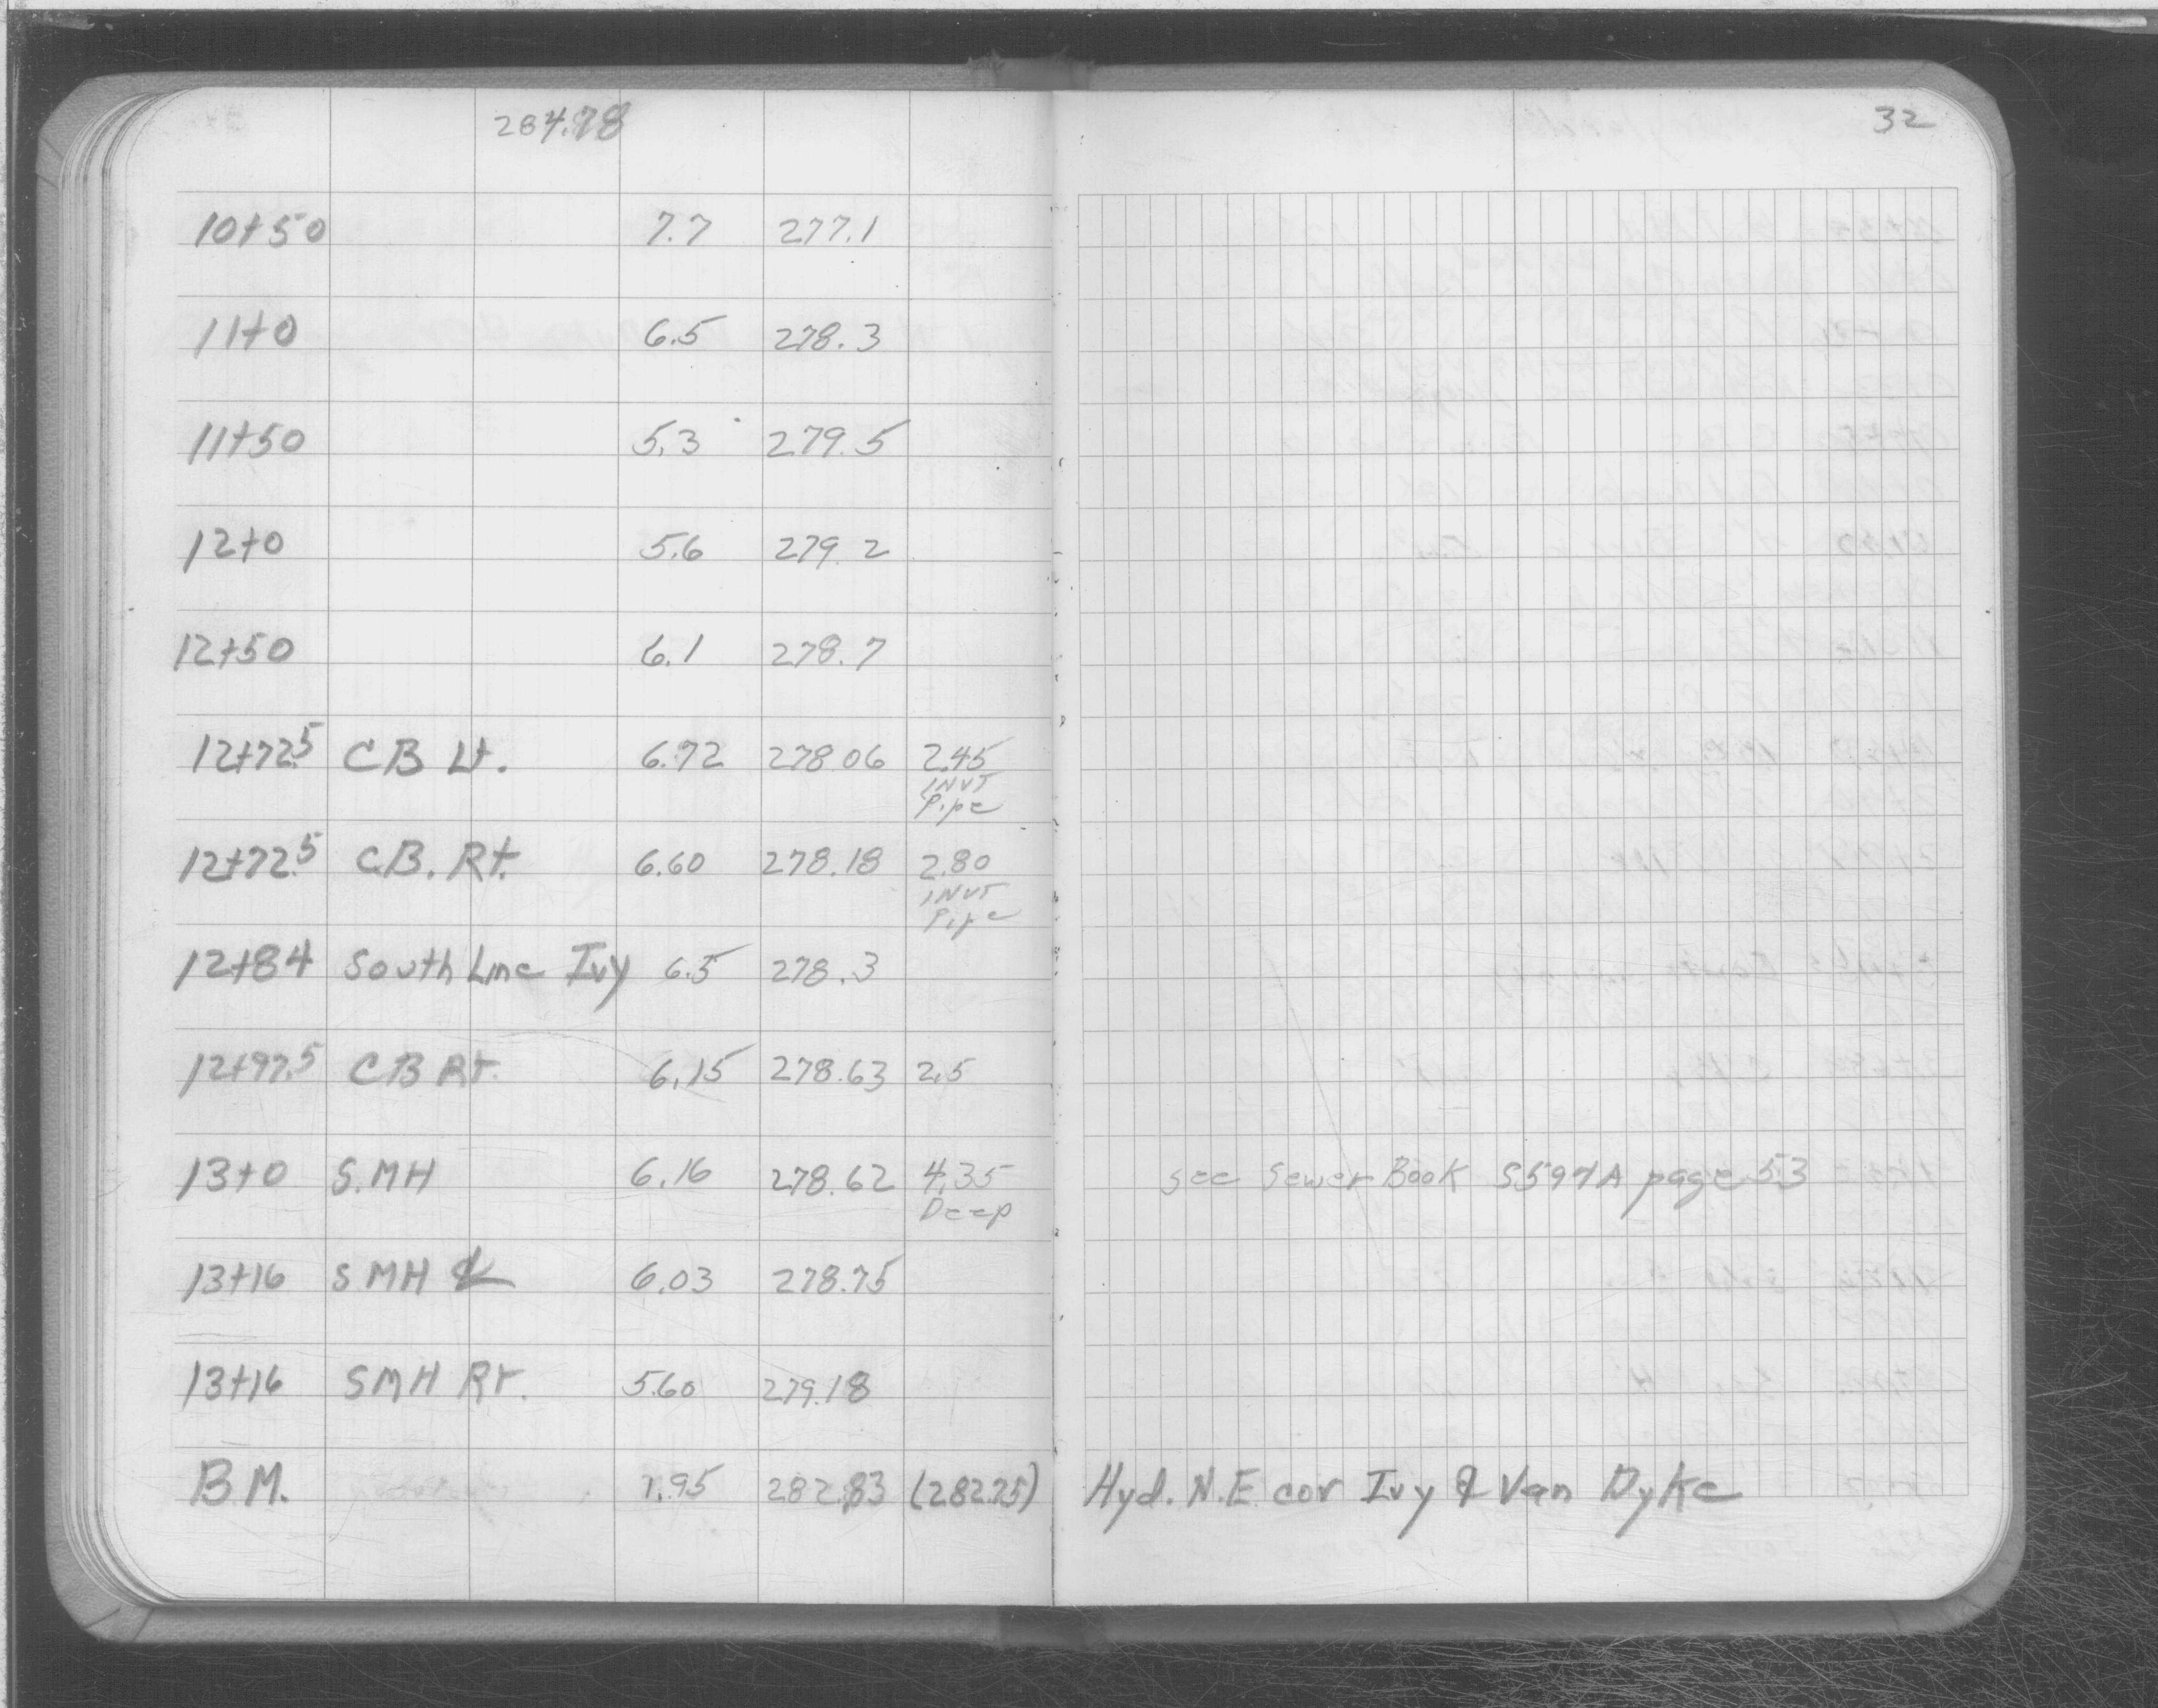 284.78
32
10+50 7.7 277.1
11+0 6.5 278.3
11+50 5.3 279.5
12+0 5.6 279.2
12+50 6.1 278.7
12+72.5 CB Lt. 6.72 278.06 2.45
INVT
Pipe
12+72.5 CB. Rt. 6.60 278.18 2.80
INVT
Pipe
12+84 South Line Ivy 6.5 278.3
12+97.5 CB Rt. 6.15 278.63 2.5
13+0 S.MH 6.16 278.62 4.35 see Sewer Book S597A page 53
Deep
13+16 SMH ℄ 6.03 278.75
13+16 SMH Rt. 5.60 279.18
B.M. 1.95 282.83 (282.75) Hyd. N.E. cor Ivy & Van Dyke